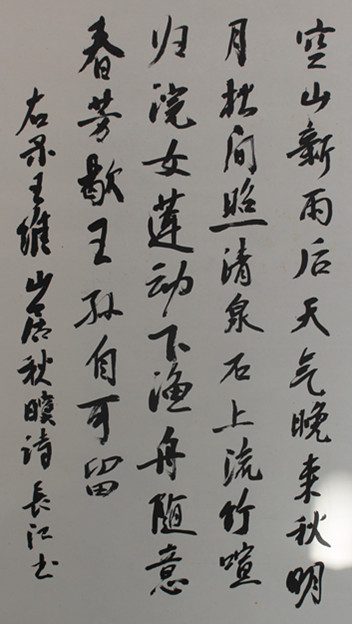 空山新雨后天气晚来秋明
月松间照清泉石上流竹喧
归浣女莲动下渔舟随意
春芳歇王孙自可留
右录王维山居秋暝诗 長江书